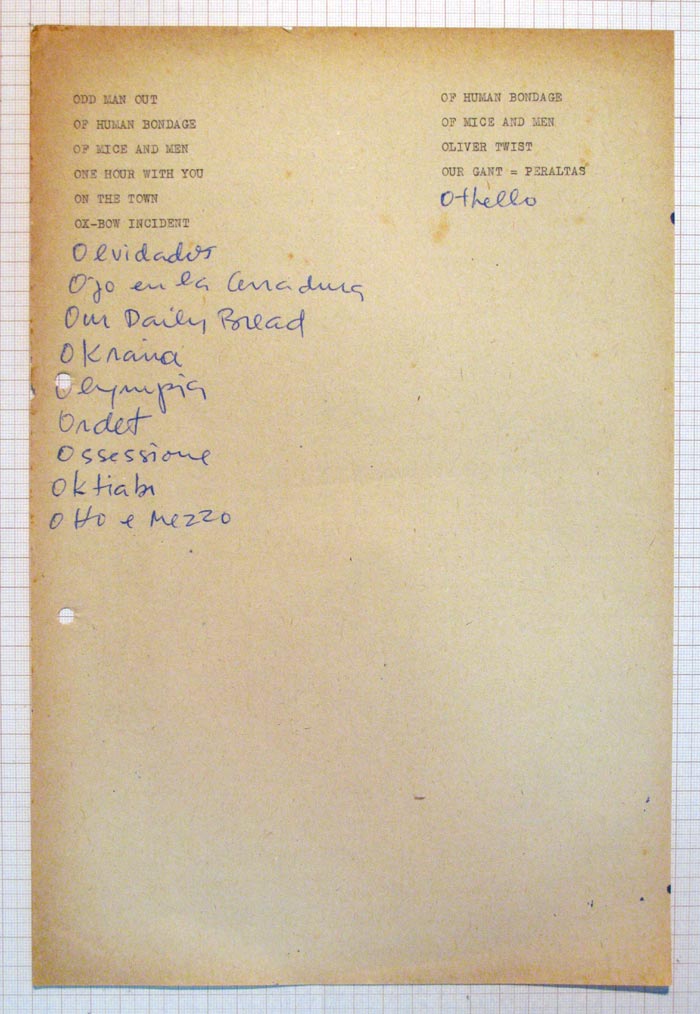 ODD MAN OUT
OF HUMAN BONDAGE
OF MICE AND MEN
ONE HOUR WITH YOU
ON THE TOWN
OX-BOW INCIDENT
Olvidados
Ojo en la Cerradura
Our Daily Bread
Okraina
Olympia
Ordet
Ossessione
Oktiabr
Otto e mezzo
OF HUMAN BONDAGE
OF MICE AND MEN
OLIVER TWIST
OUR GANT = PERALTAS
Othello